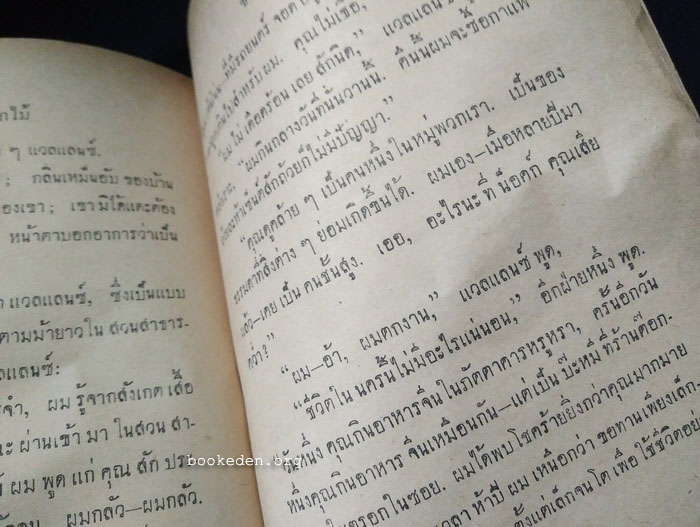 ๆ แวลแลนซ์.
; กลิ่นเหม็นอับ ของบ้าน
ของเขา; เขามิได้แตะต้อง
หน้าตาบอกอาการว่าเป็น
แวลแลนซ์, ซึ่งเป็นแบบ
ตามม้ายาวใน สวนสาธาร-
แลนซ์:
ผมรู้จากสังเกต เสื้อ
ผ่านเข้า มา ในสวน สา-
ผม พูด แก่ คุณ สัก ประ
ผมกลัว—ผมกลัว.
คุณ ไม่เชื่อ,
ผม ไม่ เดือดร้อน เลย สักนิด," แวลแลนซ์
"ผมกินกลางวันที่นั้นวานนี้. คืนนี้ผมจะซื้อกาแฟ
ห้าเซ็นต์สักถ้วยก็ไม่มีปัญญา."
"คุณดูคล้าย ๆ เป็นคนหนึ่งในหมู่พวกเรา. เป็นของ
ธรรมดาที่สิ่งต่าง ๆ ย่อมเกิดขึ้นได้. ผมเอง—เมื่อหลายปีมา
แล้ว—เคย เป็น คนชั้นสูง. เออ, อะไรนะ ที่ น็อคก์ คุณเสีย
คว่ำ?"
"ผม—อ้า, ผมตกงาน," แวลแลนซ์ พูด,
"ชีวิตใน นครนี้ไม่มีอะไรแน่นอน," อีกฝ่ายหนึ่ง พูด.
วันหนึ่ง คุณกินอาหารจีนในภัตตาคารหรูหรา, ครั้นอีกวัน
หนึ่งคุณกินอาหาร จีนเหมือนกัน—แต่เป็น บะหมี่ ที่ร้านตือก-
ในซอย. ผมได้พบโชคร้ายยิ่งกว่าคุณมากมาย
ห้าปี ผม เหนือกว่า ขอทานเพียงเล็ก
ตั้งแต่เล็กจนโต เพื่อ ใช้ชีวิตอย
bookeden.org